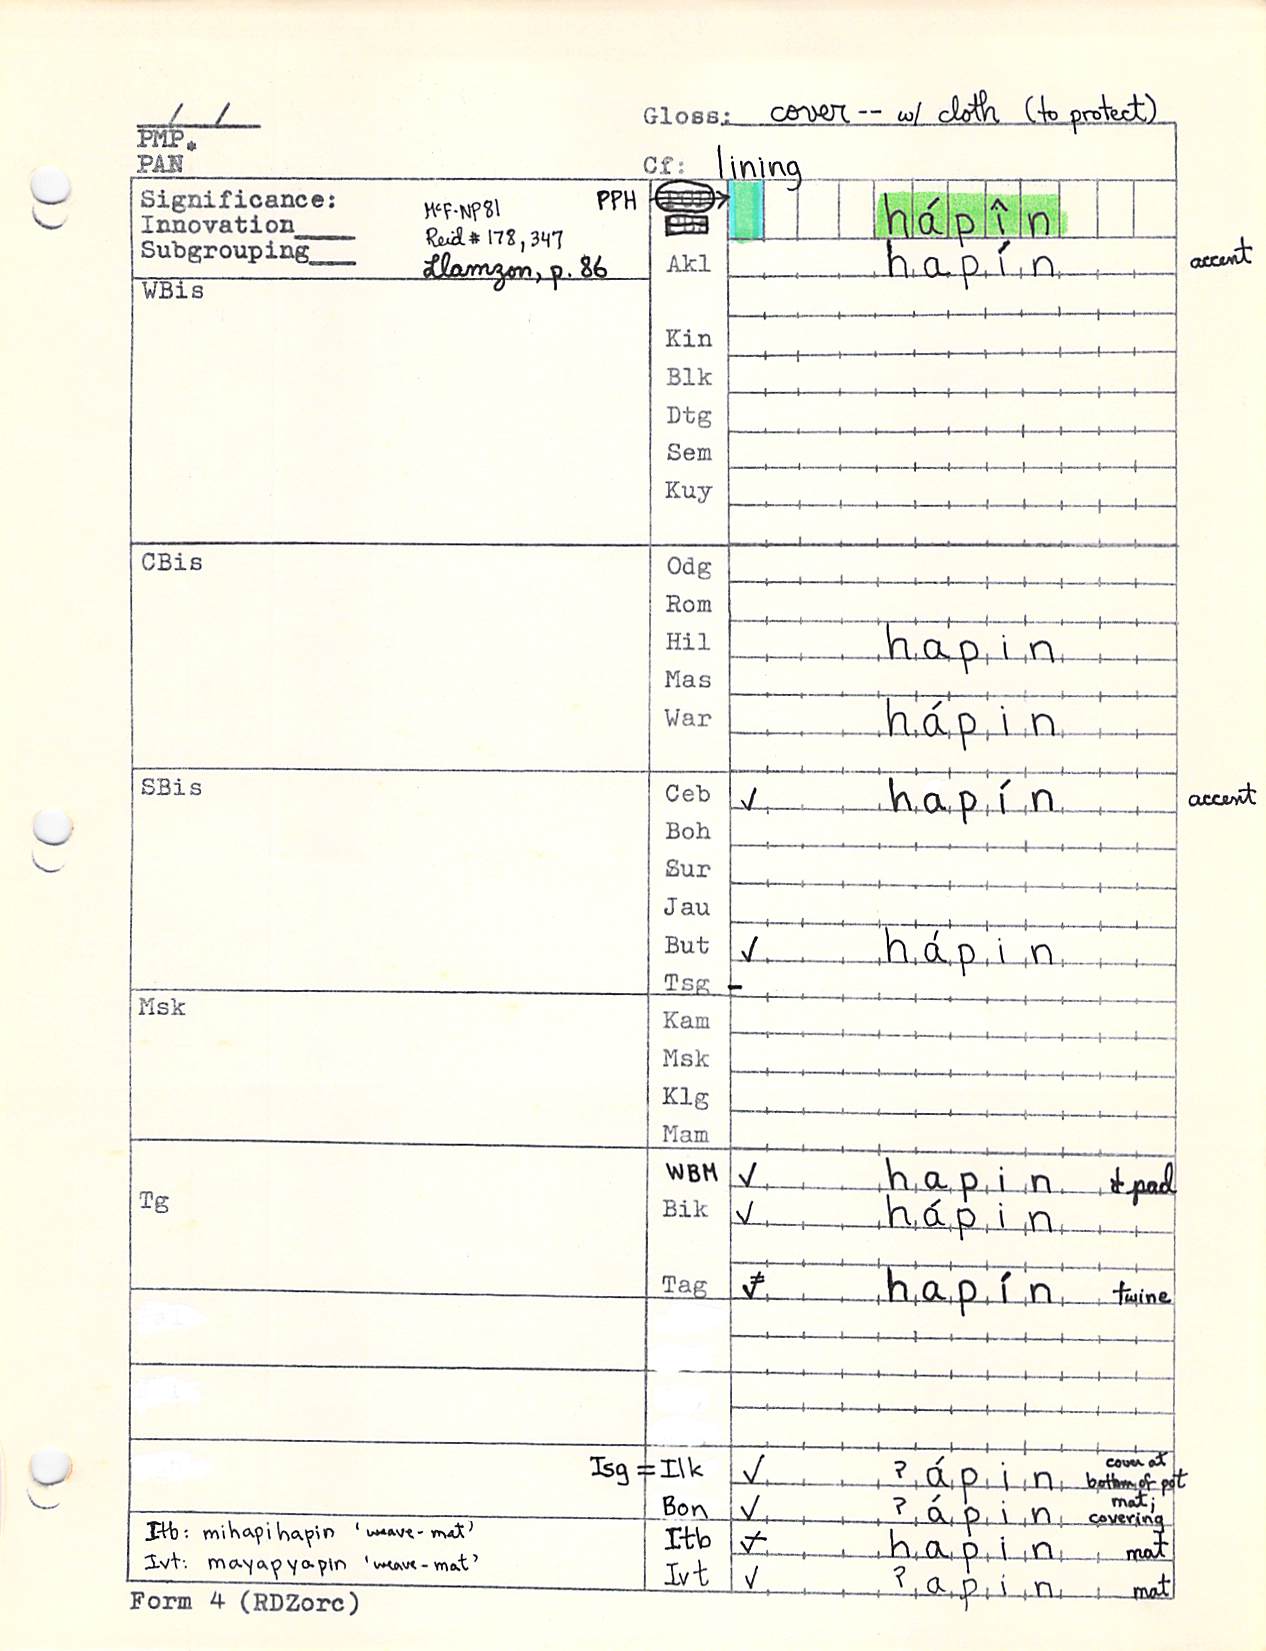 / /
PMP.
PAN
Gloss: cover -- w/ cloth (to protect)
Cf: lining
Significance:
Innovation____
Subgrouping____
McF-NP81
Reid # 178, 347
Llamzon, p. 86
PPH → hápîn
Akl hapín accent
WBis
Kin
Blk
Dtg
Sem
Kuy
CBis
Odg
Rom
Hil hapin
Mas
War hápin
SBis
Ceb ✓ hapín accent
Boh
Sur
Jau
But ✓ hápin
Tsg -
Msk
Kam
Msk
Klg
Mam
WBM ✓ hapin + pad
Tg
Bik ✓ hápin
Tag hapín twine
Isg = Ilk ✓ ʔápin cover at bottom of pot
Bon ✓ ʔápin mat; covering
Itb: mihapihapin 'weave-mat'
Itb hapin mat
Ivt: mayapyapin 'weave-mat'
Ivt ✓ ʔapin mat
Form 4 (RDZorc)